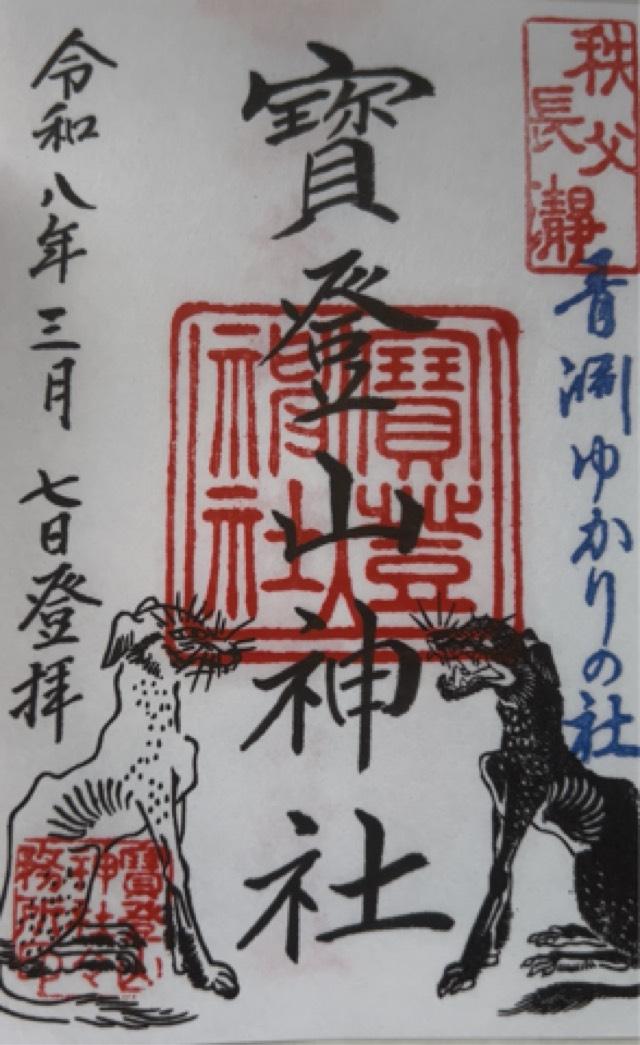 秩父
長瀞
青淵ゆかりの社
寳登山神社
寳登山
神社
令和八年三月七日登拝
寳登山
神社々
務所印